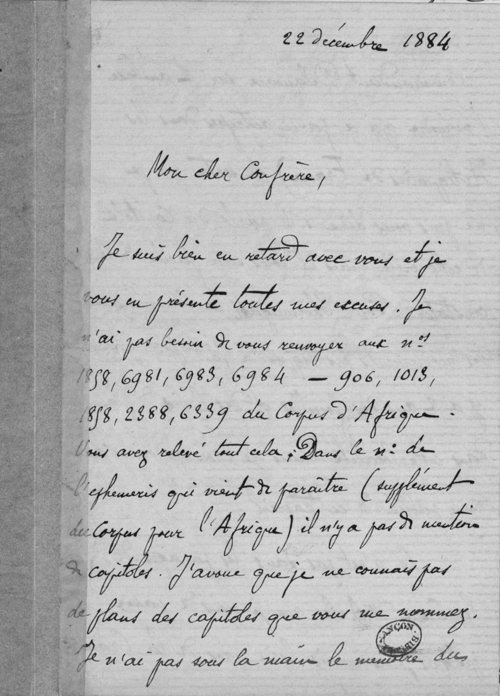 22 décembre 1884
Mon cher Confrère,
Je suis bien en retard avec vous et je
vous en présente toutes mes excuses. Je
n'ai pas besoin de vous renvoyer aux nos
1858, 6981, 6983, 6984 — 906, 1013,
1858, 2388, 6339 du Corpus d'Afrique.
Vous avez relevé tout cela; Dans le no de
l'ephemeris qui vient de paraître (supplément
du Corpus pour l'Afrique) il n'y a pas de mention
de capitoles. J'avoue que je ne connais pas
de plans des capitoles que vous me nommez.
Je n'ai pas sous la main le mémoire du